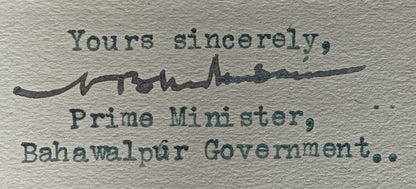 Yours sincerely,
Prime Minister,
Bahawalpúr Government..